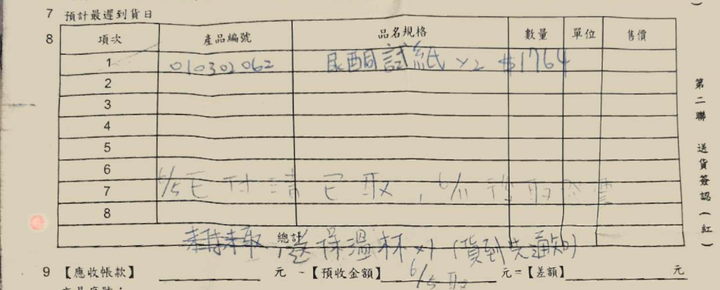 7 預計最遲到貨日
8 項次 產品編號 品名規格 數量 單位 售價
1 010302062 尿酮試紙 x2 $1764
2
3
4
5
6
7 6/5已付清已取，6/11後取發票
8
未取 總計 送保溫杯x1 (貨到先通知)
9 【應收帳款】 元 -【預收金額】 6/5取 元=【差額】 元
第二聯 送貨簽認（紅）